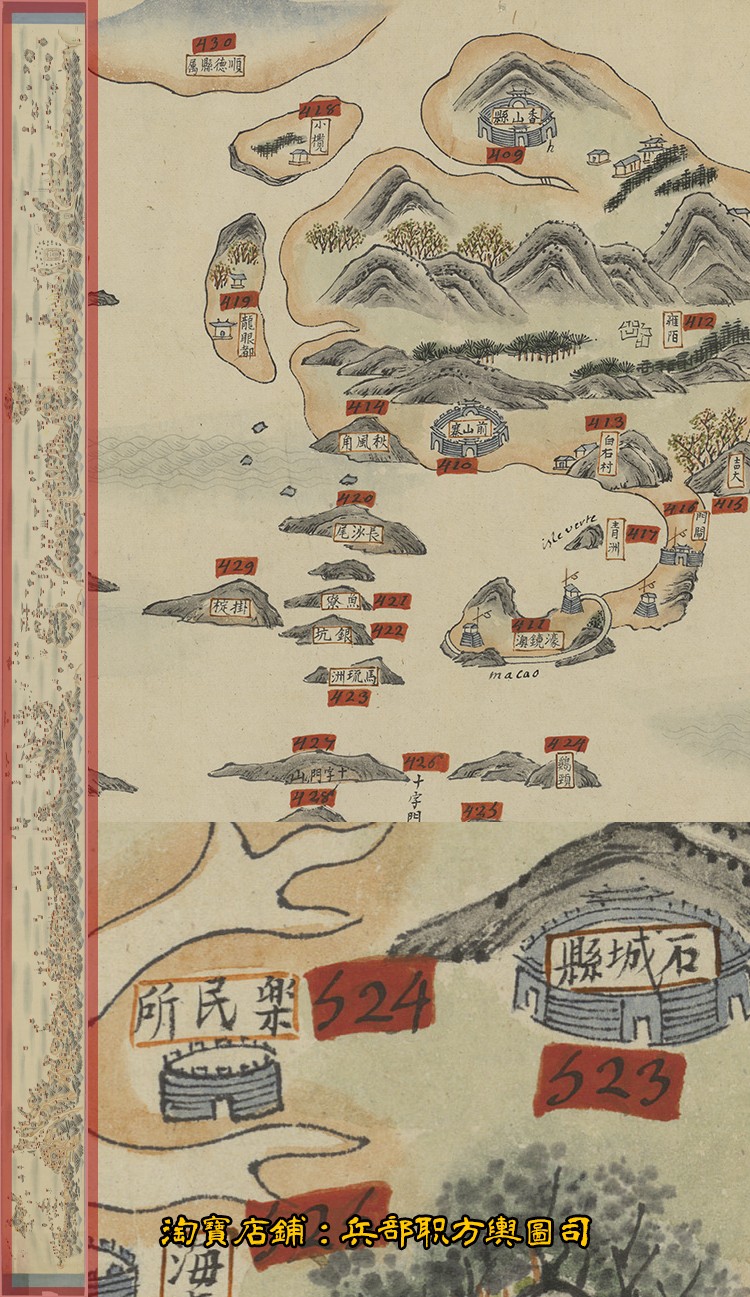 430
順德縣屬
418
小欖
香山縣
409
h
419
龍眼都
雍陌
412
414
秋風角
前山寨
410
413
白石村
吉大
415
416
門閘
420
長沙尾
isle verte
青洲
417
429
掛椗
魚寮
421
銀坑
422
411
濠鏡澳
macao
馬琉洲
423
427
十字門山
426
十字門
424
鷄頸
428
425
石城縣
523
樂民所
524
海
淘寶店鋪：兵部职方舆圖司